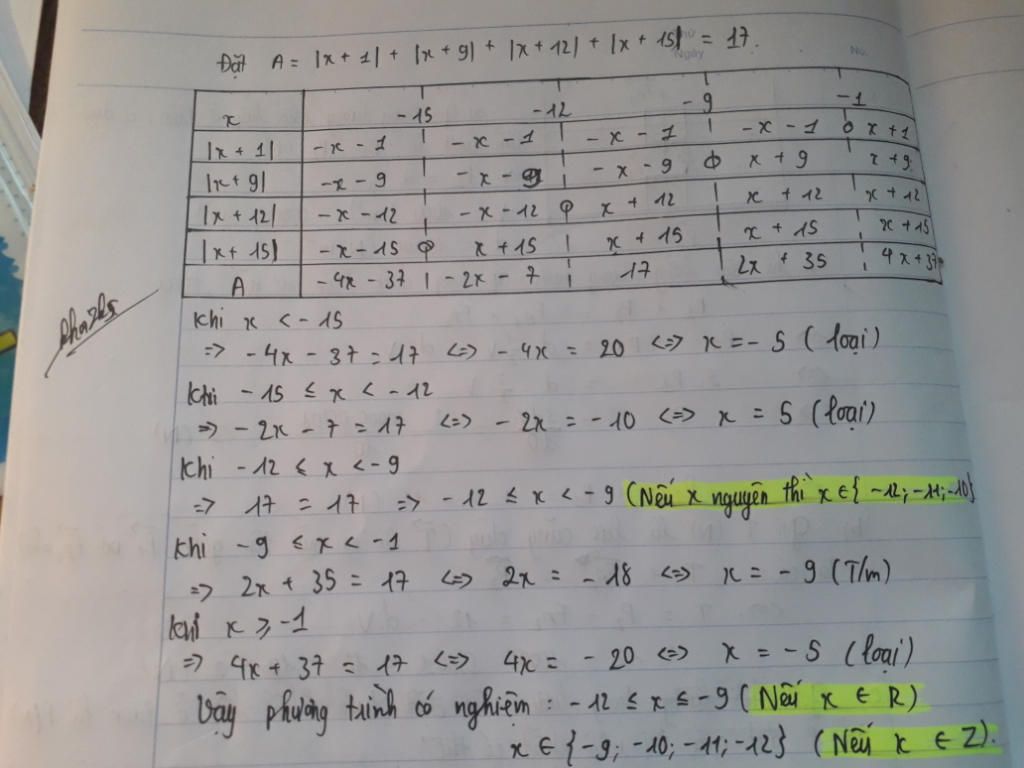 Đặt A = |x + 1| + |x + 9| + |x + 12| + |x + 15| = 17.
x -15 -12 -9 -1
|x + 1| -x - 1 -x - 1 -x - 1 -x - 1 0 x + 1
|x + 9| -x - 9 -x - 9 -x - 9 0 x + 9 x + 9
|x + 12| -x - 12 -x - 12 0 x + 12 x + 12 x + 12
|x + 15| -x - 15 0 x + 15 x + 15 x + 15 x + 15
A -4x - 37 -2x - 7 17 2x + 35 4x + 37
Khi x < -15
=> -4x - 37 = 17 <=> -4x = 20 <=> x = -5 (loại)
Khi -15 ≤ x < -12
=> -2x - 7 = 17 <=> -2x = -10 <=> x = 5 (loại)
Khi -12 ≤ x < -9
=> 17 = 17 => -12 ≤ x < -9 (Nếu x nguyên thì x ∈ { -12; -11; -10}
Khi -9 ≤ x < -1
=> 2x + 35 = 17 <=> 2x = -18 <=> x = -9 (T/m)
Khi x ≥ -1
=> 4x + 37 = 17 <=> 4x = -20 <=> x = -5 (loại)
Vậy phương trình có nghiệm : -12 ≤ x ≤ -9 (Nếu x ∈ R)
x ∈ { -9; -10; -11; -12} (Nếu x ∈ Z).